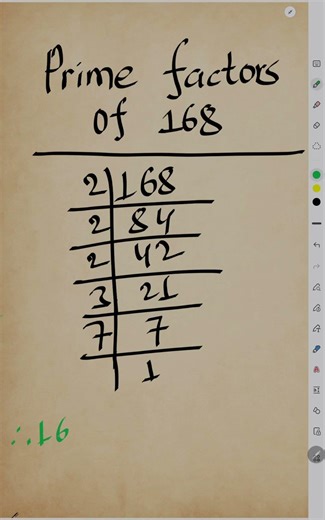 Prime factors
of 168
2 168
2 84
2 42
3 21
7 7
1
∴16